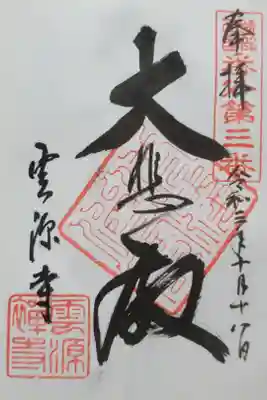 奉拝
第三番
令和三年十月十八日
大悲殿
雲源寺
雲源
禅寺